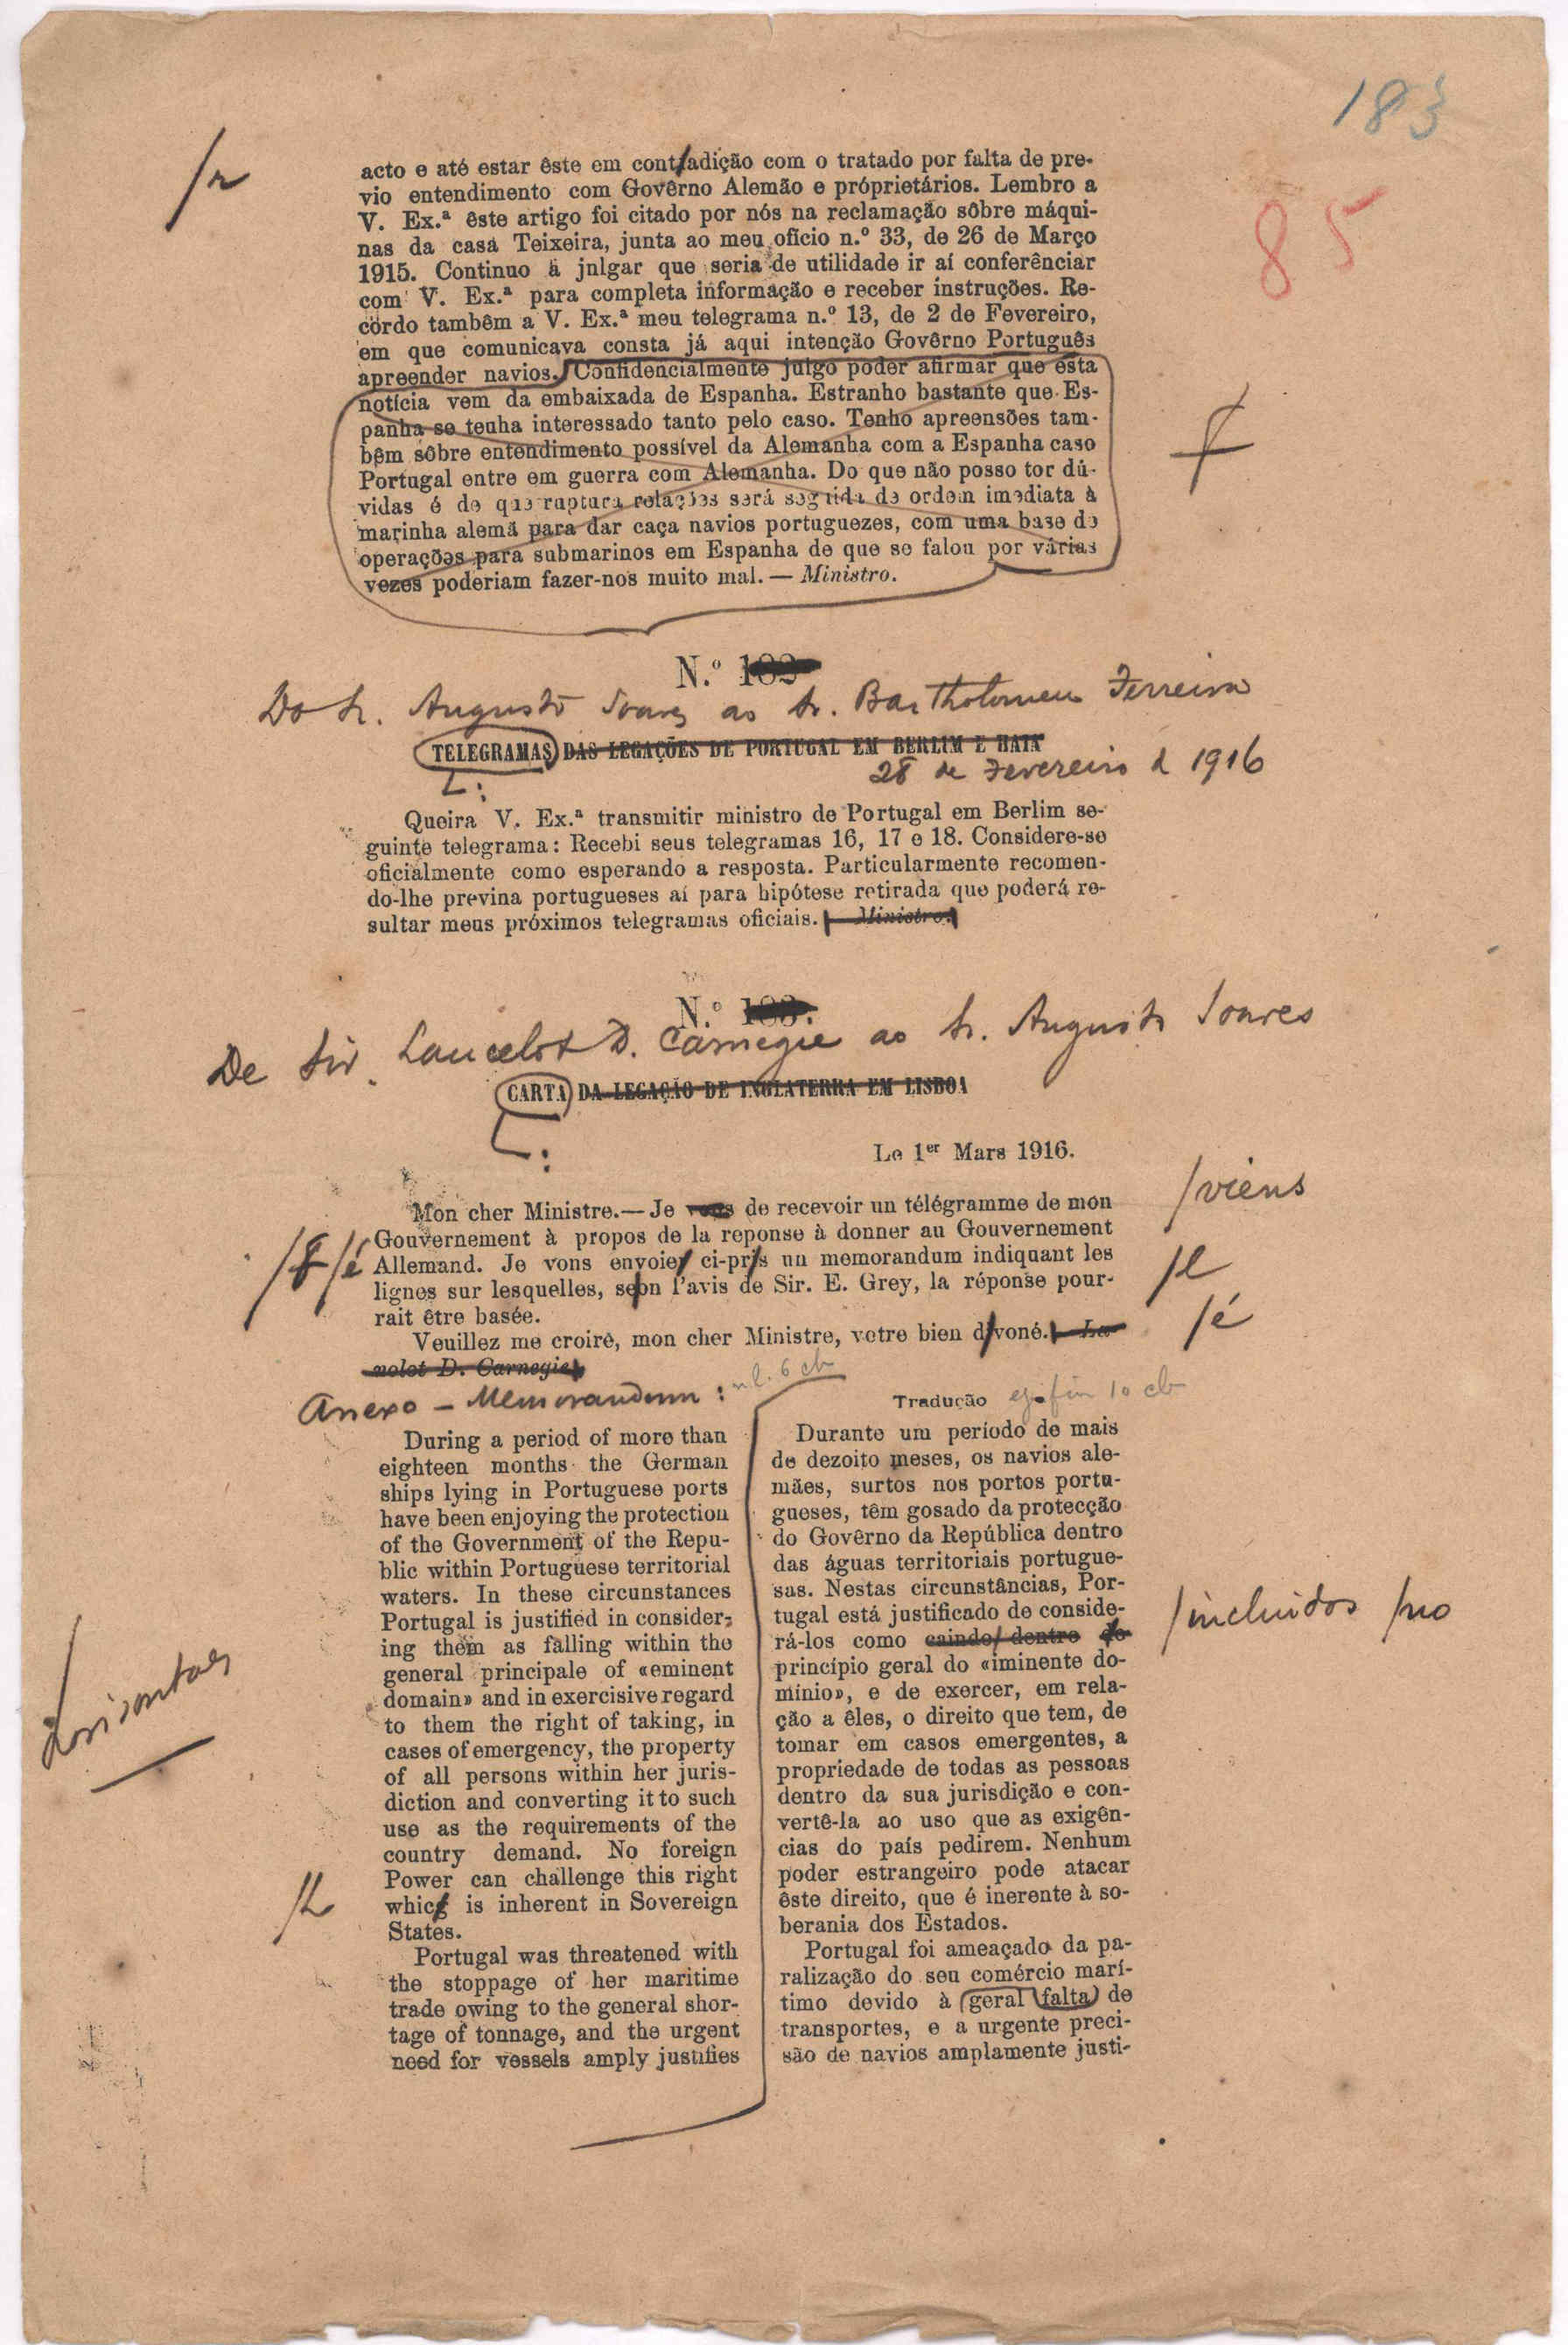 183
85
/r
acto e até estar êste em cont/adição com o tratado por falta de pre-
vio entendimento com Govêrno Alemão e próprietários. Lembro a
V. Ex.ª êste artigo foi citado por nós na reclamação sôbre máqui-
nas da casa Teixeira, junta ao meu ofício n.º 33, de 26 de Março
1915. Continuo a jnlgar que seria de utilidade ir aí conferênciar
com V. Ex.ª para completa informação e receber instruções. Re-
cordo tambêm a V. Ex.ª meu telegrama n.º 13, de 2 de Fevereiro,
em que comunicava consta já aqui intenção Govêrno Português
apreender navios. Confidencialmente julgo poder afirmar que esta
notícia vem da embaixada de Espanha. Estranho bastante que Es-
panha se tenha interessado tanto pelo caso. Tenho apreensões tam-
bêm sôbre entendimento possível da Alemanha com a Espanha caso
Portugal entre em guerra com Alemanha. Do que não posso ter dú-
vidas é de que ruptura relações será seguida de ordem imediata à
marinha alemã para dar caça navios portuguezes, com uma base de
operações para submarinos em Espanha de que se falou por várias
vezes poderiam fazer-nos muito mal. — Ministro.
N.º 182
Do Sr. Augusto Soares ao Sr. Bartholomeu Ferreira
TELEGRAMAS DAS LEGAÇÕES DE PORTUGAL EM BERLIM E HAIA
28 de Fevereiro d 1916
Queira V. Ex.ª transmitir ministro de Portugal em Berlim se-
guinte telegrama: Recebi seus telegramas 16, 17 e 18. Considere-se
oficialmente como esperando a resposta. Particularmente recomen-
do-lhe previna portugueses aí para hipótese retirada que poderá re-
sultar meus próximos telegramas oficiais. — Ministro.
N.º 183.
De Sir. Lancelot D. Carnegie ao Sr. Augusto Soares
CARTA DA LEGAÇÃO DE INGLATERRA EM LISBOA
Le 1er Mars 1916.
Mon cher Ministre.— Je vous de recevoir un télégramme de mon /viens
Gouvernement à propos de la reponse à donner au Gouvernement
Allemand. Je vons envoie/ ci-pr/s un memorandum indiquant les
/é
lignes sur lesquelles, se/on l'avis de Sir. E. Grey, la réponse pour- /l
rait être basée.
Veuillez me croire, mon cher Ministre, votre bien d/voné. — La- /é
nolot D. Carnegie
Anexo — Memorandum :
During a period of more than
eighteen months the German
ships lying in Portuguese ports
have been enjoying the protection
of the Government of the Repu-
blic within Portuguese territorial
waters. In these circunstances
Portugal is justified in consider-
ing them as falling within the
general principale of «eminent
domain» and in exercisive regard
to them the right of taking, in
cases of emergency, the property
of all persons within her juris-
diction and converting it to such
use as the requirements of the
country demand. No foreign
Power can challenge this right
whic/ is inherent in Sovereign
/h
States.
Portugal was threatened with
the stoppage of her maritime
trade owing to the general shor-
tage of tonnage, and the urgent
need for vessels amply justifies
Tradução
Durante um período de mais
de dezoito meses, os navios ale-
mães, surtos nos portos portu-
gueses, têm gosado da protecção
do Govêrno da República dentro
das águas territoriais portugue-
sas. Nestas circunstâncias, Por-
tugal está justificado de conside-
rá-los como caindo dentro do /incluidos /no
princípio geral do «iminente do-
mínio», e de exercer, em rela-
ção a êles, o direito que tem, de
tomar em casos emergentes, a
propriedade de todas as pessoas
dentro da sua jurisdição e con-
vertê-la ao uso que as exigên-
cias do país pedirem. Nenhum
poder estrangeiro pode atacar
êste direito, que é inerente à so-
berania dos Estados.
Portugal foi ameaçado da pa-
ralização do seu comércio marí-
timo devido à geral falta de
transportes, e a urgente preci-
são de navios amplamente justi-